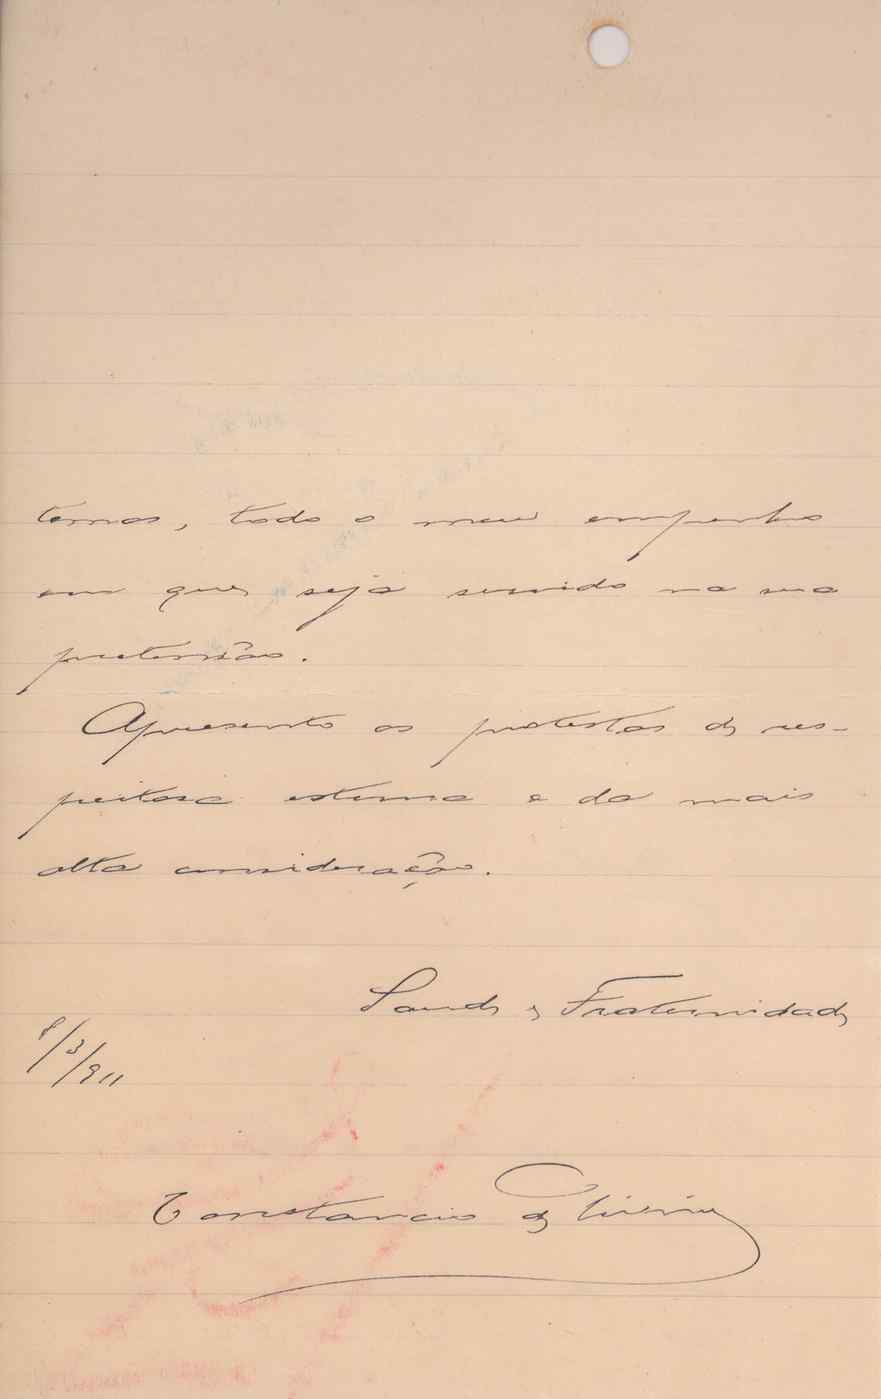 temos, todo o meu empenho
em que seja servido na sua
pretensão.
Apresento os protestos de res-
peitosa estima e da mais
alta consideração.
Saude e Fraternidade
8/3/911
Constancio de Oliveira